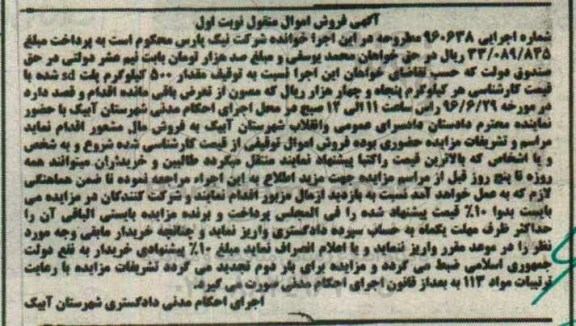 آگهی فروش اموال منقول نوبت اول
شماره اجرایی ۹۶۰۶۳۸ مطروحه در این اجرا خوانده شرکت نیگ پارس محکوم است به پرداخت مبلغ
۳۳/۰۸۹/۸۳۵ ریال در حق خواهان محمد یوسفی و مبلغ صد هزار تومان بابت نیم عشر دولتی در حق
صندوق دولت که حسب تقاضای خواهان این اجرا نسبت به توقیف مقدار ۵۰۰ کیلوگرم پلت sd شده با
قیمت کارشناسی هر کیلوگرم پنجاه و چهار هزار ریال که مصون از تعرض باقی مانده اقدام و قصد دارد
در مورخه ۹۶/۶/۲۹ راس ساعت ۱۱ الی ۱۲ صبح در محل اجرای احکام مدنی شهرستان آبیک با حضور
نماینده محترم دادستان دادسرای عمومی وانقلاب شهرستان آبیک به فروش مال مشعور اقدام نماید
مراسم و تشریفات مزایده حضوری بوده فروش اموال توقیفی از قیمت کارشناسی شده شروع و به شخص
و یا اشخاص که بالاترین قیمت راکتبا پیشنهاد نمایند منتقل میگردد طالبین و خریداران میتوانند همه
روزه تا پنج روز قبل از مراسم مزایده جهت مزید اطلاع به این اجراء مراجعه نموده تا ضمن هماهنگی
لازم که به عمل خواهد آمد نسبت به بازدید ازمال مزبور اقدام نمایند و شرکت کنندگان در مزایده می
بایست بدوا ۱۰٪ قیمت پیشنهاد شده را فی المجلس پرداخت و برنده مزایده بایستی الباقی آن را
حداکثر ظرف مهلت یکماه به حساب سپرده دادگستری واریز نماید و چنانچه خریدار مابقی وجه مورد
نظر را در موعد مقرر واریز ننماید و یا اعلام انصراف نماید مبلغ ۱۰٪ پیشنهادی خریدار به نفع دولت
جمهوری اسلامی ضبط می گردد و مزایده برای بار دوم تجدید می گردد تشریفات مزایده با رعایت
ترتیبات مواد ۱۱۳ به بعداز قانون اجرای احکام مدنی صورت می گیرد.
اجرای احکام مدنی دادگستری شهرستان آبیک